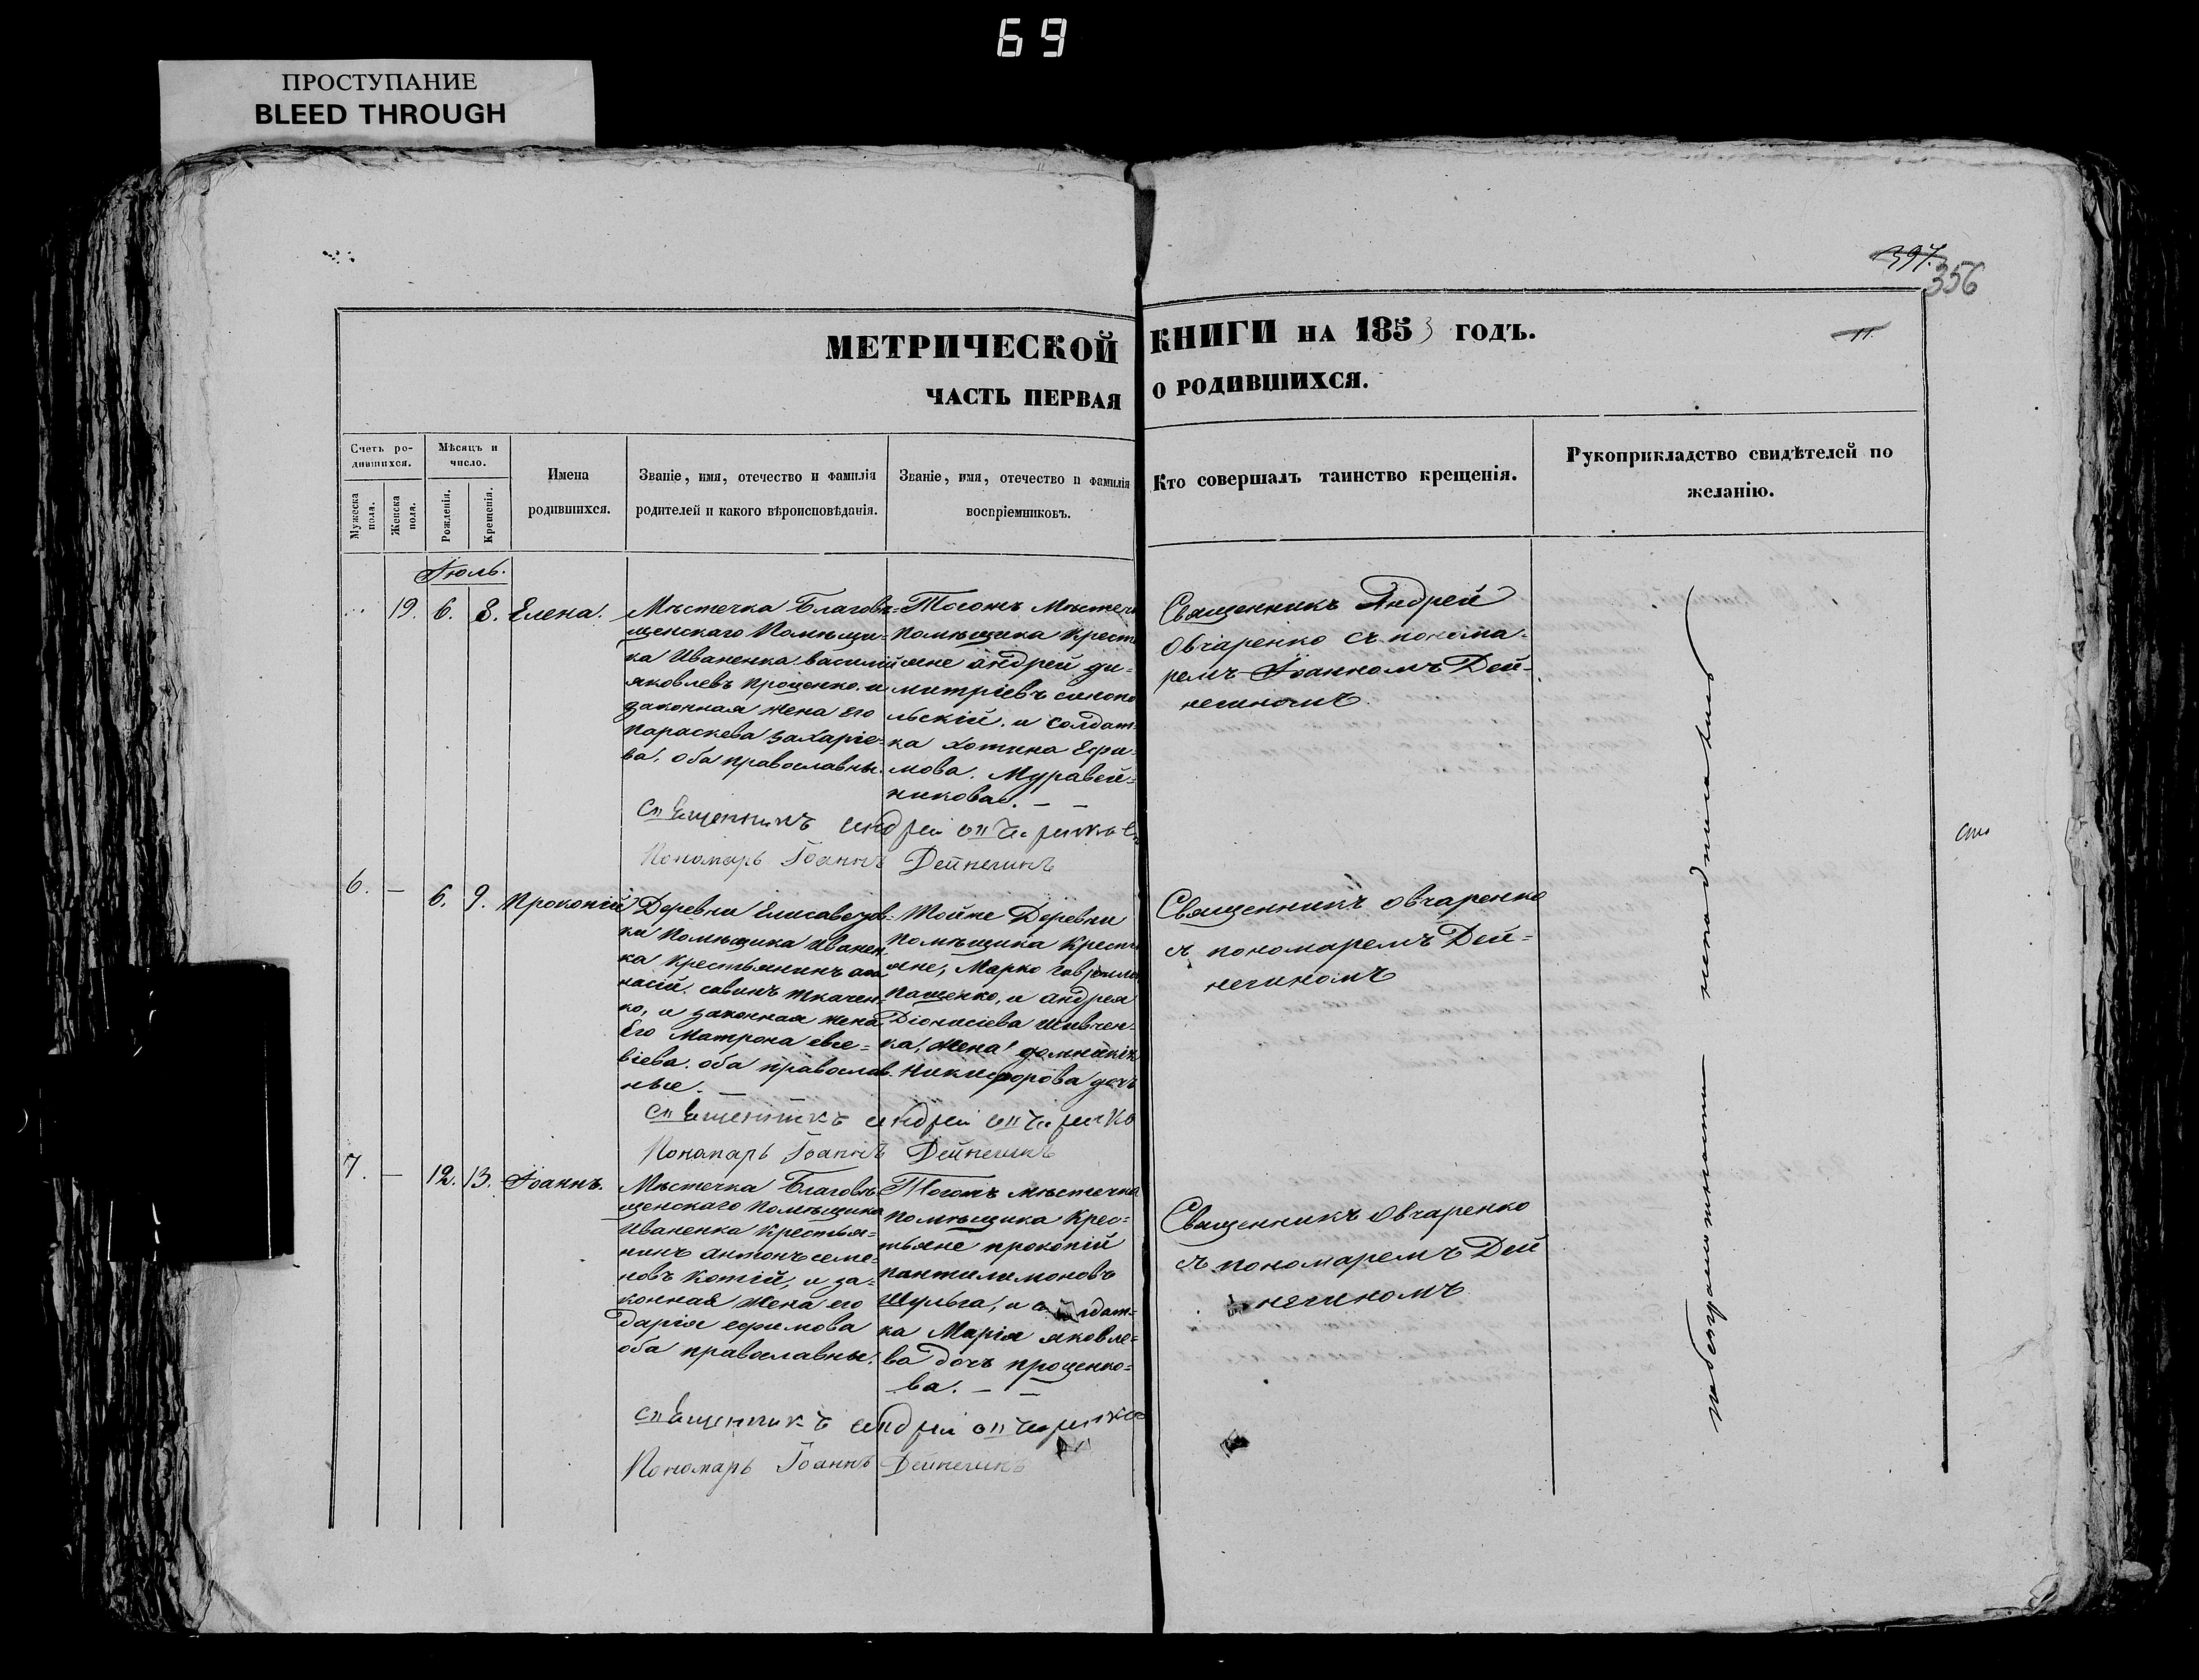 69
ПРОСТУПАНИЕ
BLEED THROUGH
397.
356
МЕТРИЧЕСКОЙ КНИГИ НА 1853 ГОДЪ.
11.
ЧАСТЬ ПЕРВАЯ О РОДИВШИХСЯ.
Счетъ ро-
дившихся.
Мужеска пола.
Женска пола.
Мѣсяцъ и
число.
Рожденія.
Крещенія.
Имена
родившихся.
Званіе, имя, отечество и фамилія
родителей и какого вѣроисповѣданія.
Званіе, имя, отечество и фамилія
воспріемниковъ.
Кто совершалъ таинство крещенія.
Рукоприкладство свидѣтелей по
желанію.
Іюль.
19. 6. 8. Елена.
Мѣстечка Благовѣ-
щенскаго Помѣщи-
ка Иваненка василій
яковлевъ проценко. и
законная жена его
параскева захаріе-
ва. оба православны.
Тогожъ Мѣстеч
помѣщика крест
яне андрей ди-
митріевъ
льскій. и солдат-
ка хотина Ефи-
мова. Муравей-
никова.
Священникъ Андрей
Овчаренко съ понома-
ремъ Іоанномъ Дей-
негиномъ.
Священникъ андрей овчаренко
Пономарь Іоаннъ Дейнегинъ
6. — 6. 9. Прокопій
Деревни Елисаветов-
ки Помѣщика Иванен
ка крестьянинъ афа
насій. савинъ ткачен-
ко, и законная жена
Его Матрона евсе-
віева. оба православ-
ные.
Тойже Деревни
помѣщика крестя
яне, Марко гаврил
пащенко, и андрея
Діонисіева шевчен-
ка, жена
Никифорова дочь
Священникъ овчаренко
съ пономаремъ Дей-
негиномъ
Священникъ андрей овчаренко
Пономарь Іоаннъ Дейнегинъ
7. — 12. 13. Іоаннъ.
Мѣстечка Благовѣ
щенскаго Помѣщика
Иваненка Крестья-
нинъ антонъ семе-
новъ Котій, и за-
конная жена его
дарія ефимова
оба православны.
Тогожъ мѣстечка
помѣщика Крес-
тьяне прокопій
пантилимоновъ
Шульга, и солдат-
ка Марія яковле-
ва дочь проценко-
ва.
Священникъ Овчаренко
съ пономаремъ Дей
негиномъ
Священникъ андрей овчаренко
Пономарь Іоаннъ Дейнегинъ